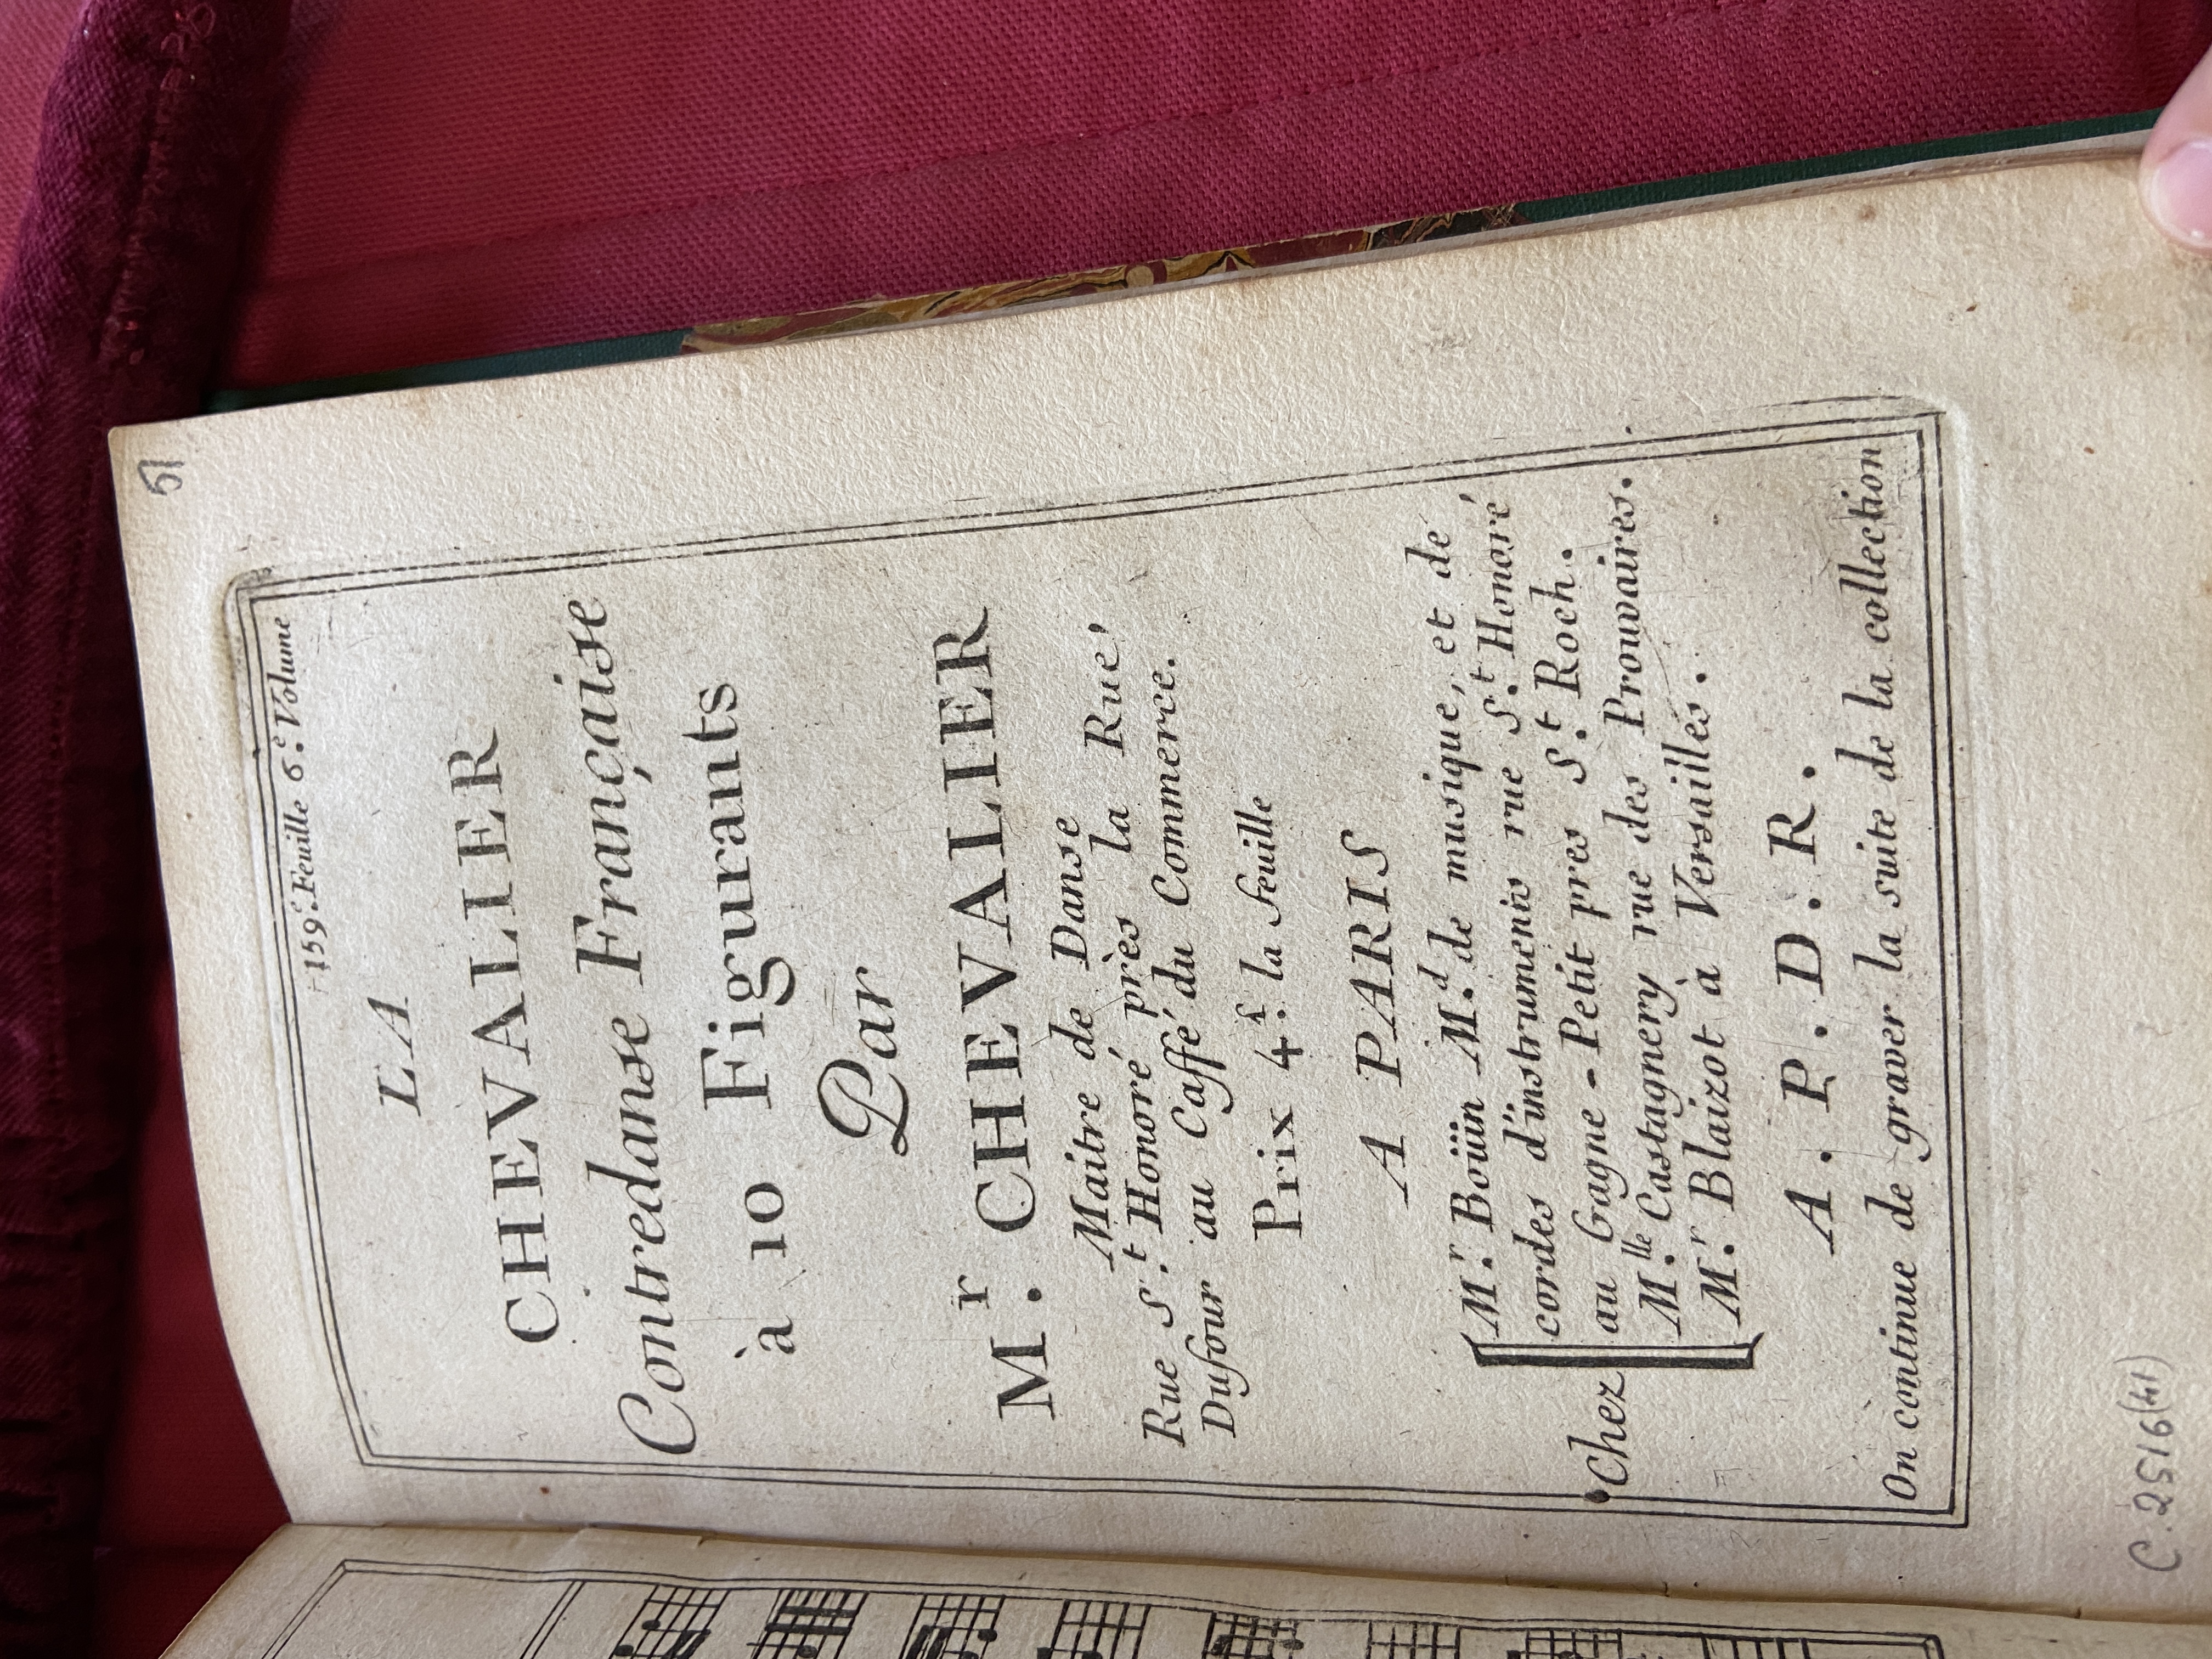 51
159.e Feuille 6.e Volume
LA
CHEVALIER
Contredanse Française
à 10 Figurants
Par
M.r CHEVALIER
Maitre de Danse
Rue S.t Honoré près la Rue
Dufour au Caffé du Commerce.
Prix 4.f la feuille
A PARIS
Chez
M.r Boüin M.d de musique, et de
cordes d'instruments rue S.t Honoré
au Gagne-Petit pres S.t Roch.
M.lle Castagnery rue des Prouvaires.
M.r Blaizot à Versailles.
A. P. D. R.
On continue de graver la suite de la collection
C. 2516(41)